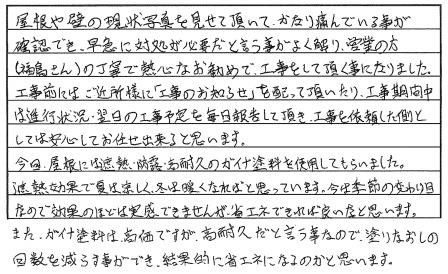 屋根や壁の現状写真を見せて頂いて、かなり痛んでいる事が
確認でき、早急に対処が必要だと言う事がよく解り、営業の方
(福島さん)の丁寧で熱心なお勧めで、工事をして頂く事になりました。
工事前にはご近所様に「工事のお知らせ」を配って頂いたり、工事期間中
は進行状況・翌日の工事予定を毎日報告して頂き、工事を依頼した側と
しては安心してお任せ出来ると思います。
今回、屋根には遮熱・防露・高耐久のガイナ塗料を使用してもらいました。
遮熱効果で夏は涼しく、冬は暖くなればと思っています。今は季節の変わり目
なので効果のほどは実感できませんが、省エネできれば良いなと思います。
また、ガイナ塗料は高価ですが、高耐久だと言う事なので、塗りなおしの
回数を減らす事ができ、結果的に省エネになるのかと思います。